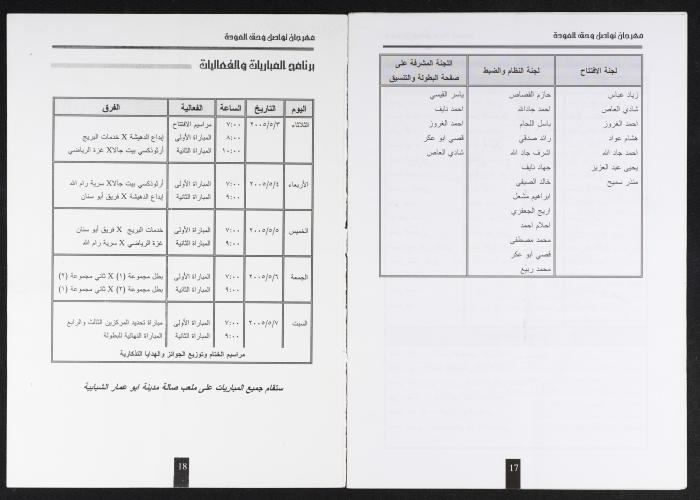 مهرجان تواصل وحق العودة
لجنة الافتتاح
لجنة النظام والضبط
اللجنة المشرفة على
صفحة البطولة والتنسيق
زياد عباس
حازم القصاص
ياسر القيسي
شادي العاص
احمد جادالله
احمد نايف
احمد الغروز
باسل اللحام
احمد الغروز
هشام عواد
رائد صدقي
قصي ابو عكر
احمد جاد الله
اشرف جاد الله
شادي العاص
يحيى عبد العزيز
جهاد نايف
منذر سميح
خالد الصيفي
ابراهيم مشعل
اريج الجعفري
احلام احمد
محمد مصطفى
قصي ابو عكر
محمد ربيع
17
مهرجان تواصل وحق العودة
برنامج المباريات والفعاليات
اليوم التاريخ الساعة الفعالية الفرق
الثلاثاء ٢٠٠٥/٥/٣ ٧:٠٠ مراسيم الافتتاح
٨:٠٠ المباراة الأولى إبداع الدهيشة X خدمات البريج
١٠:٠٠ المباراة الثانية أرثوذكسي بيت جالاX غزة الرياضي
الأربعاء ٢٠٠٥/٥/٤ ٧:٠٠ المباراة الأولى أرثوذكسي بيت جالاX سرية رام الله
٩:٠٠ المباراة الثانية إبداع الدهيشة X فريق أبو سنان
الخميس ٢٠٠٥/٥/٥ ٧:٠٠ المباراة الأولى خدمات البريج X فريق أبو سنان
٩:٠٠ المباراة الثانية غزة الرياضي X سرية رام الله
الجمعة ٢٠٠٥/٥/٦ ٧:٠٠ المباراة الأولى بطل مجموعة (١) X ثاني مجموعة (٢)
٩:٠٠ المباراة الثانية بطل مجموعة (٢) X ثاني مجموعة (١)
السبت ٢٠٠٥/٥/٧ ٧:٠٠ المباراة الأولى مباراة تحديد المركزين الثالث والرابع
٩:٠٠ المباراة الثانية المباراة النهائية للبطولة
مراسيم الختام وتوزيع الجوائز والهدايا التذكارية
ستقام جميع المباريات على ملعب صالة مدينة ابو عمار الشبابية
18